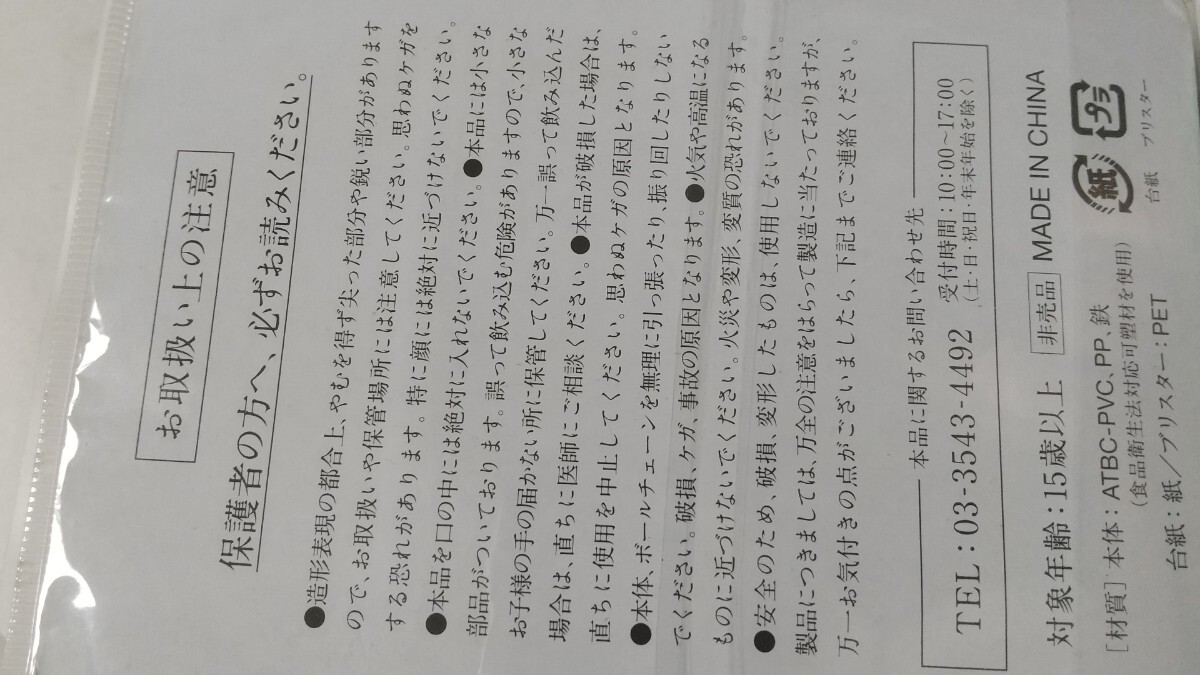 お取扱い上の注意
保護者の方へ、必ずお読みください。
●造形表現の都合上、やむを得ず尖った部分や鋭い部分があります
ので、お取扱いや保管場所には注意してください。思わぬケガを
する恐れがあります。特に顔には絶対に近づけないでください。
●本品を口の中には絶対に入れないでください。●本品には小さな
部品がついております。誤って飲み込む危険がありますので、小さな
お子様の手の届かない所に保管してください。万一誤って飲み込んだ
場合は、直ちに医師にご相談ください。●本品が破損した場合は、
直ちに使用を中止してください。思わぬケガの原因となります。
●本体、ボールチェーンを無理に引っ張ったり、振り回したりしない
でください。破損、ケガ、事故の原因となります。●火気や高温になる
ものに近づけないでください。火災や変形、変質の恐れがあります。
●安全のため、破損、変形したものは、使用しないでください。
製品につきましては、万全の注意をはらって製造に当たっておりますが、
万一お気付きの点がございましたら、下記までご連絡ください。
本品に関するお問い合わせ先
TEL:03-3543-4492 受付時間:10:00~17:00
(土・日・祝日・年末年始を除く)
対象年齢:15歳以上 非売品 MADE IN CHINA
[材質]本体:ATBC-PVC、PP、鉄
(食品衛生法対応可塑材を使用)
台紙:紙/ブリスター:PET
紙 プラ
台紙 ブリスター